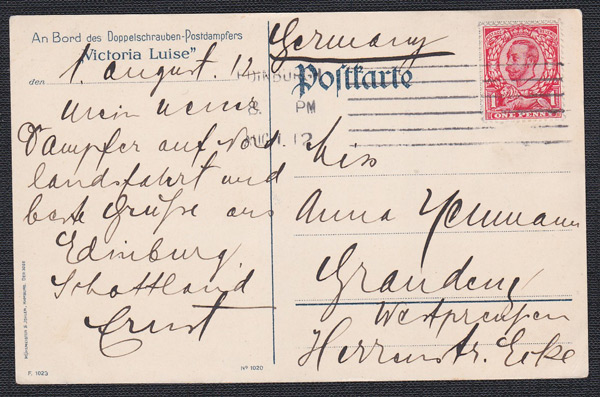 An Bord des Doppelschrauben-Postdampfers
"Victoria Luise"
den 1. August. 12
Mein neuer
Dampfer auf Nord
landsfahrt und
beste Grüße aus
Edinburg.
Schottland
Ernst
Germany
Postkarte
EDINBURGH
8. PM
AUG 1. 12
1 1
ONE PENNY
Miss
Anna
Graudenz
Westpreußen
Herrenstr. Ecke
F. 1023
No 1020